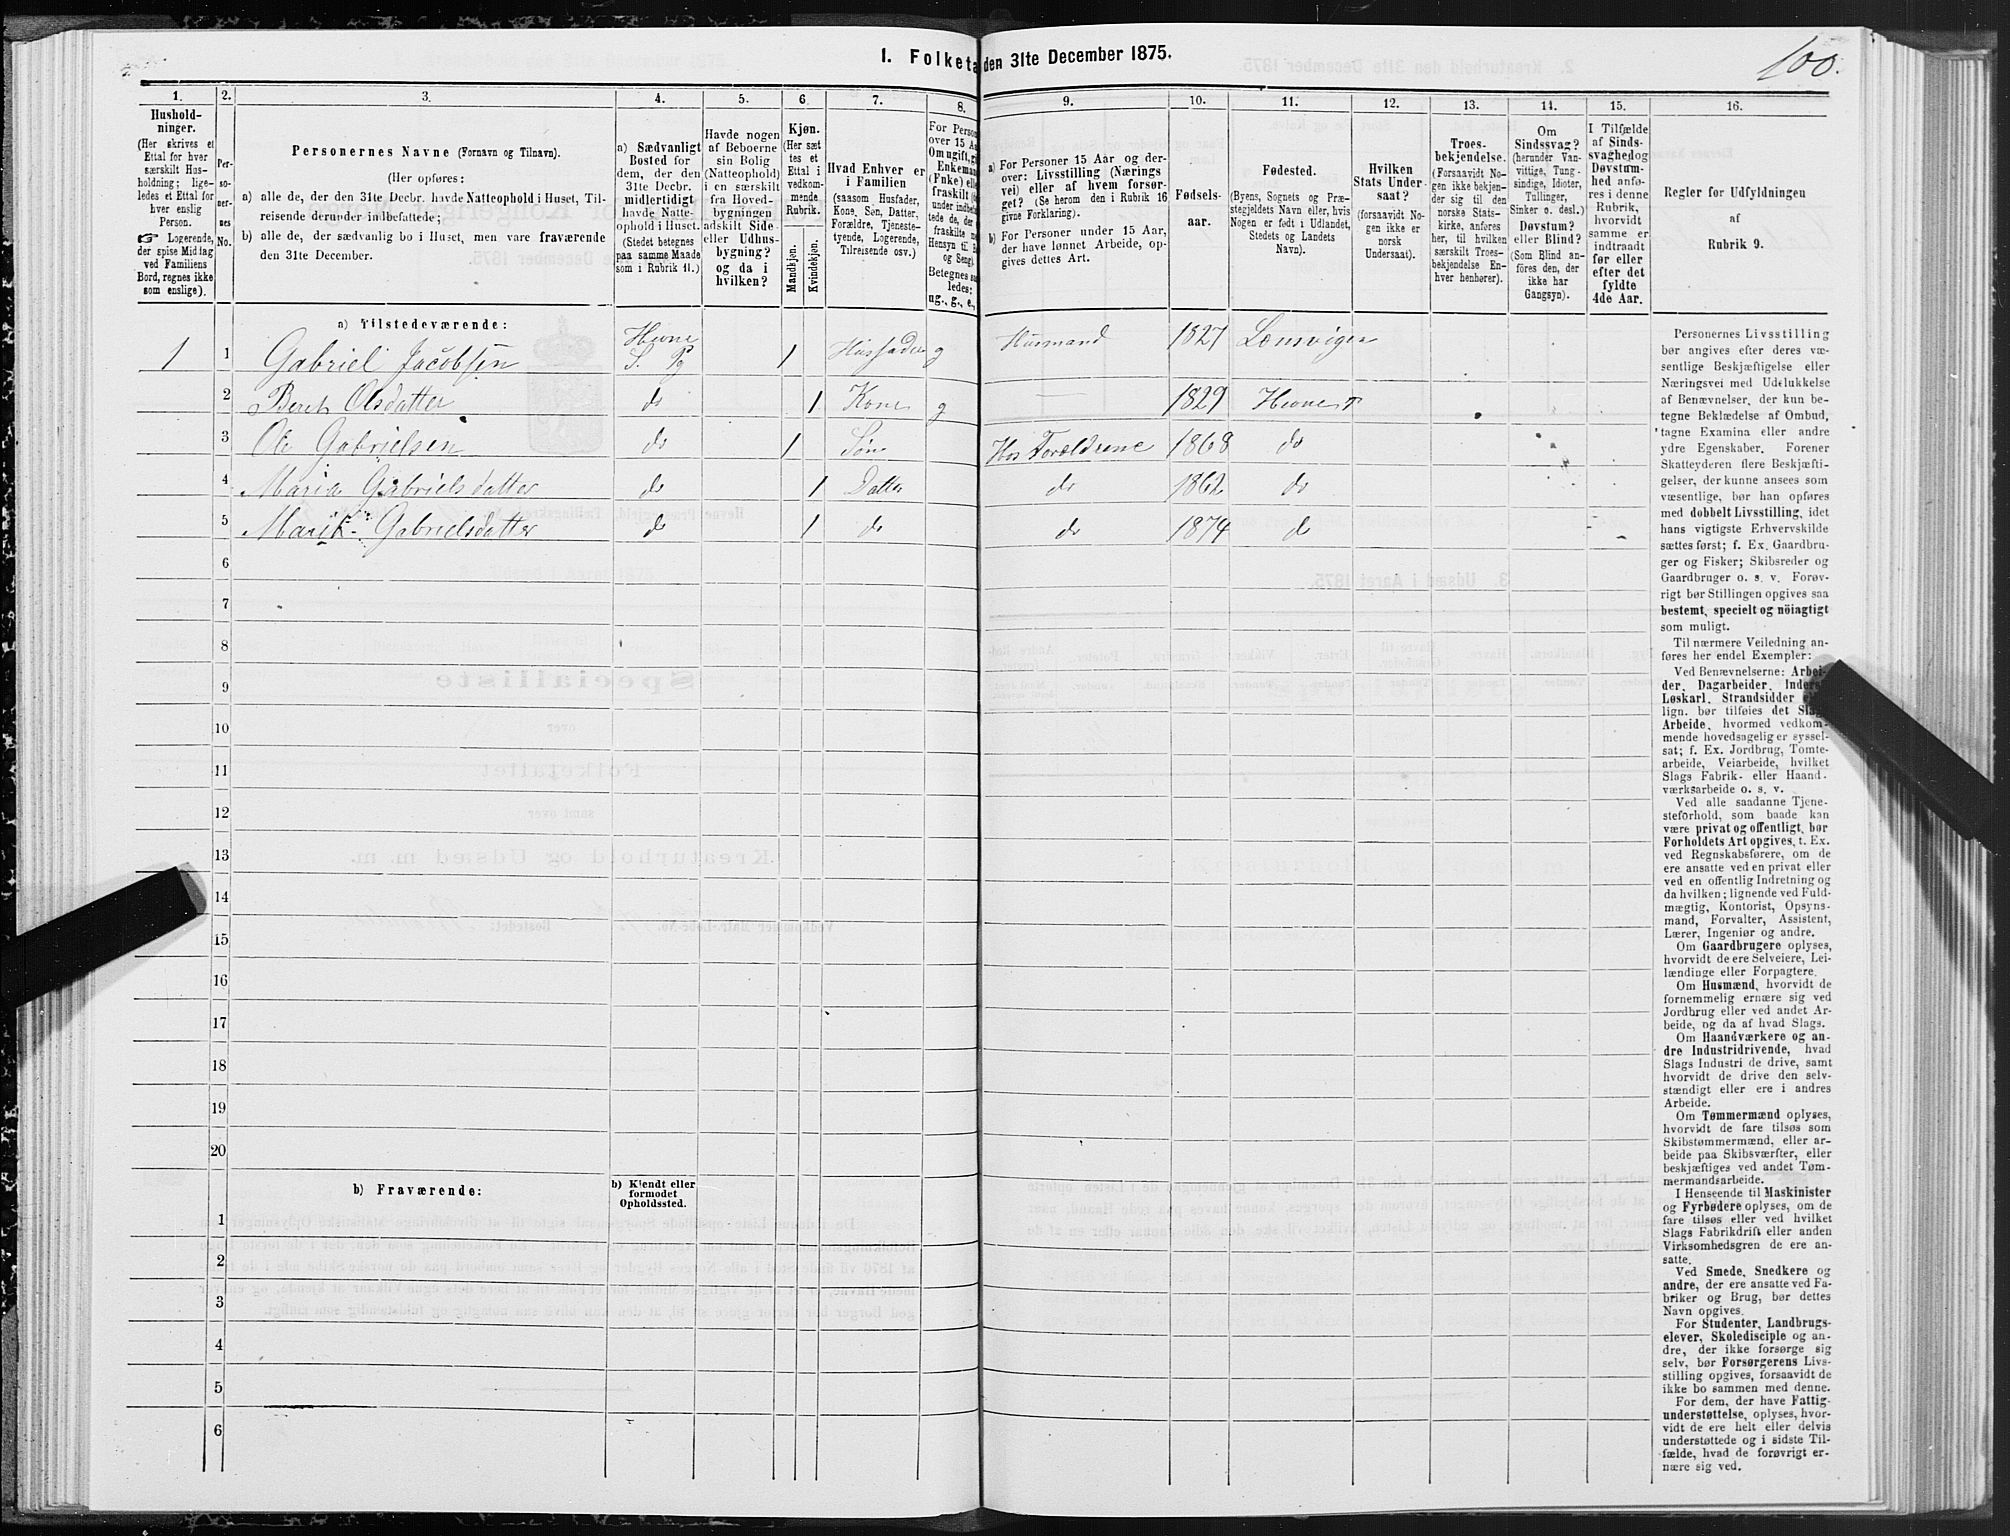 1. Folketa den 31te December 1875.
100.
1. 2. 3. 4. 5. 6. 7. 8. 9. 10. 11. 12. 13. 14. 15. 16.
Hushold-
ninger.
(Her skrives et
Ettal for hver
særskilt Hus-
holdning; lige-
ledes et Ettal for
hver enslig
Person.
☞ Logerende,
der spise Middag
ved Familiens
Bord, regnes ikke
som enslige).
Per-
so-
ner-
nes
No.
Personernes Navne (Fornavn og Tilnavn).
(Her opføres:
a) alle de, der den 31te Decbr. havde Natteophold i Huset, Til-
reisende derunder indbefattede;
b) alle de, der sædvanlig bo i Huset, men vare fraværende
den 31te December.
a) Sædvanligt
Bosted for
dem, der den
31te Decbr.
midlertidigt
havde Natte-
ophold i Huset.
(Stedet betegnes
paa samme Maade
som i Rubrik 11.)
Havde nogen
af Beboerne
sin Bolig
(Natteophold)
i en særskilt
fra Hoved-
bygningen
adskilt Side-
eller Udhus-
bygning?
og da i
hvilken?
Kjøn.
(Her sæt
tes et
Ettal i
vedkom-
mende
Rubrik.
Mandkjøn.
Kvindekjøn.
Hvad Enhver er
i Familien
(saasom Husfader,
Kone, Søn, Datter,
Forældre, Tjeneste-
tyende, Logerende,
Tilreisende osv.)
For Person
over 15 Aa
Om ugift, gi
Enkemand
(Fnke) elle
fraskilt (
under indbef
tede de, der
fraskilte m
Hensyn til B
og Seng).
Betegnes sa
ledes:
ug., g., e.,
a) For Personer 15 Aar og der-
over: Livsstilling (Nærings
vei) eller af hvem forsør-
get? (Se herom den i Rubrik 16
givne Forklaring).
b) For Personer under 15 Aar,
der have lønnet Arbeide, op-
gives dettes Art.
Fødsels-
aar.
Fødested.
(Byens, Sognets og Præ-
stegjeldets Navn eller, hvis
Nogen er født i Udlandet,
Stedets og Landets
Navn).
Hvilken
Stats Under-
saat?
(forsaavidt No-
gen ikke er
norsk
Undersaat).
Troes-
bekjendelse.
(Forsaavidt No-
gen ikke bekjen-
der sig til den
norske Stats-
kirke, anføres
her, til hvilken
særskilt Troes-
bekjendelse En-
hver henhører).
Om
Sindssvag?
(herunder Van-
vittige, Tung-
sindige, Idioter,
Tullinger,
Sinker o. desl.)
Døvstum?
eller Blind?
(Som Blind an-
føres den, der
ikke har
Gangsyn).
I Tilfælde
af Sinds-
svaghed og
Døvstum-
hed anfø-
res i denne
Rubrik,
hvorvidt
samme er
indtraadt
før eller
efter det
fyldte
4de Aar.
Regler for Udfyldningen
af
Rubrik 9.
a) Tilstedeværende:
1 1 Gabriel Jacobsen Hevne S. Pg 1 Husfader g Husmand 1827 Lemvigen
2 Beret Olsdatter do 1 Kone g — 1829 Hevne
3 Ole Gabrielsen do 1 Søn Hos Forældrene 1868 do
4 Maria Gabrielsdatter do 1 Datter do 1862 do
5 Marit Gabrielsdatter do 1 do do 1874 do
6
7
8
9
10
11
12
13
14
15
16
17
18
19
20
b) Fraværende:
b) Kjendt eller
formodet
Opholdssted.
1
2
3
4
5
6
Personernes Livsstilling
bør angives efter deres væ-
sentlige Beskjæftigelse eller
Næringsvei med Udelukkelse
af Benævnelser, der kun be-
tegne Beklædelse af Ombud,
tagne Examina eller andre
ydre Egenskaber. Forener
Skatteyderen flere Beskjæfti-
gelser, der kunne ansees som
væsentlige, bør han opføres
med dobbelt Livsstilling, idet
hans vigtigste Erhvervskilde
sættes først; f. Ex. Gaardbru-
ger og Fisker; Skibsreder og
Gaardbruger o. s. v. Forøv-
rigt bør Stillingen opgives saa
bestemt, specielt og nöiagtigt
som muligt.
Til nærmere Veiledning an-
føres her endel Exempler:
Ved Benævnelserne: Arbei-
der, Dagarbeider, Inders
Løskarl, Strandsidder
lign. bør tilføies det Slags
Arbeide, hvormed vedkom-
mende hovedsagelig er syssel-
sat; f. Ex. Jordbrug, Tomte-
arbeide, Veiarbeide, hvilket
Slags Fabrik- eller Haand-
værksarbeide o. s. v.
Ved alle saadanne Tjene-
steforhold, som baade kan
være privat og offentligt, bør
Forholdets Art opgives, t. Ex.
ved Regnskabsførere, om de
ere ansatte ved en privat eller
ved en offentlig Indretning og
da hvilken; lignende ved Fuld-
mægtig, Kontorist, Opsyns-
mand, Forvalter, Assistent,
Lærer, Ingeniør og andre.
Om Gaardbrugere oplyses,
hvorvidt de ere Selveiere, Lei-
lændinge eller Forpagtere.
Om Husmænd, hvorvidt de
fornemmelig ernære sig ved
Jordbrug eller ved andet Ar-
beide, og da af hvad Slags.
Om Haandværkere og an-
dre Industridrivende, hvad
Slags Industri de drive, samt
hvorvidt de drive den selv-
stændigt eller ere i andres
Arbeide.
Om Tømmermænd oplyses,
hvorvidt de fare tilsøs som
Skibstømmermænd, eller ar-
beide paa Skibsværfter, eller
beskjæftiges ved andet Tøm-
mermandsarbeide.
I Henseende til Maskinister
og Fyrbødere oplyses, om de
fare tilsøs eller ved hvilket
Slags Fabrikdrift eller anden
Virksomhedsgren de ere an-
satte.
Ved Smede, Snedkere og
andre, der ere ansatte ved Fa-
briker og Brug, bør dettes
Navn opgives.
For Studenter, Landbrugs-
elever, Skoledisciple og an-
dre, der ikke forsørge sig
selv, bør Forsørgerens Livs-
stilling opgives, forsaavidt de
ikke bo sammen med denne.
For dem, der have Fattig-
understøttelse, oplyses, hvor-
vidt de ere helt eller delvis
understøttede og i sidste Til-
fælde, hvad de forøvrigt er-
nære sig ved.